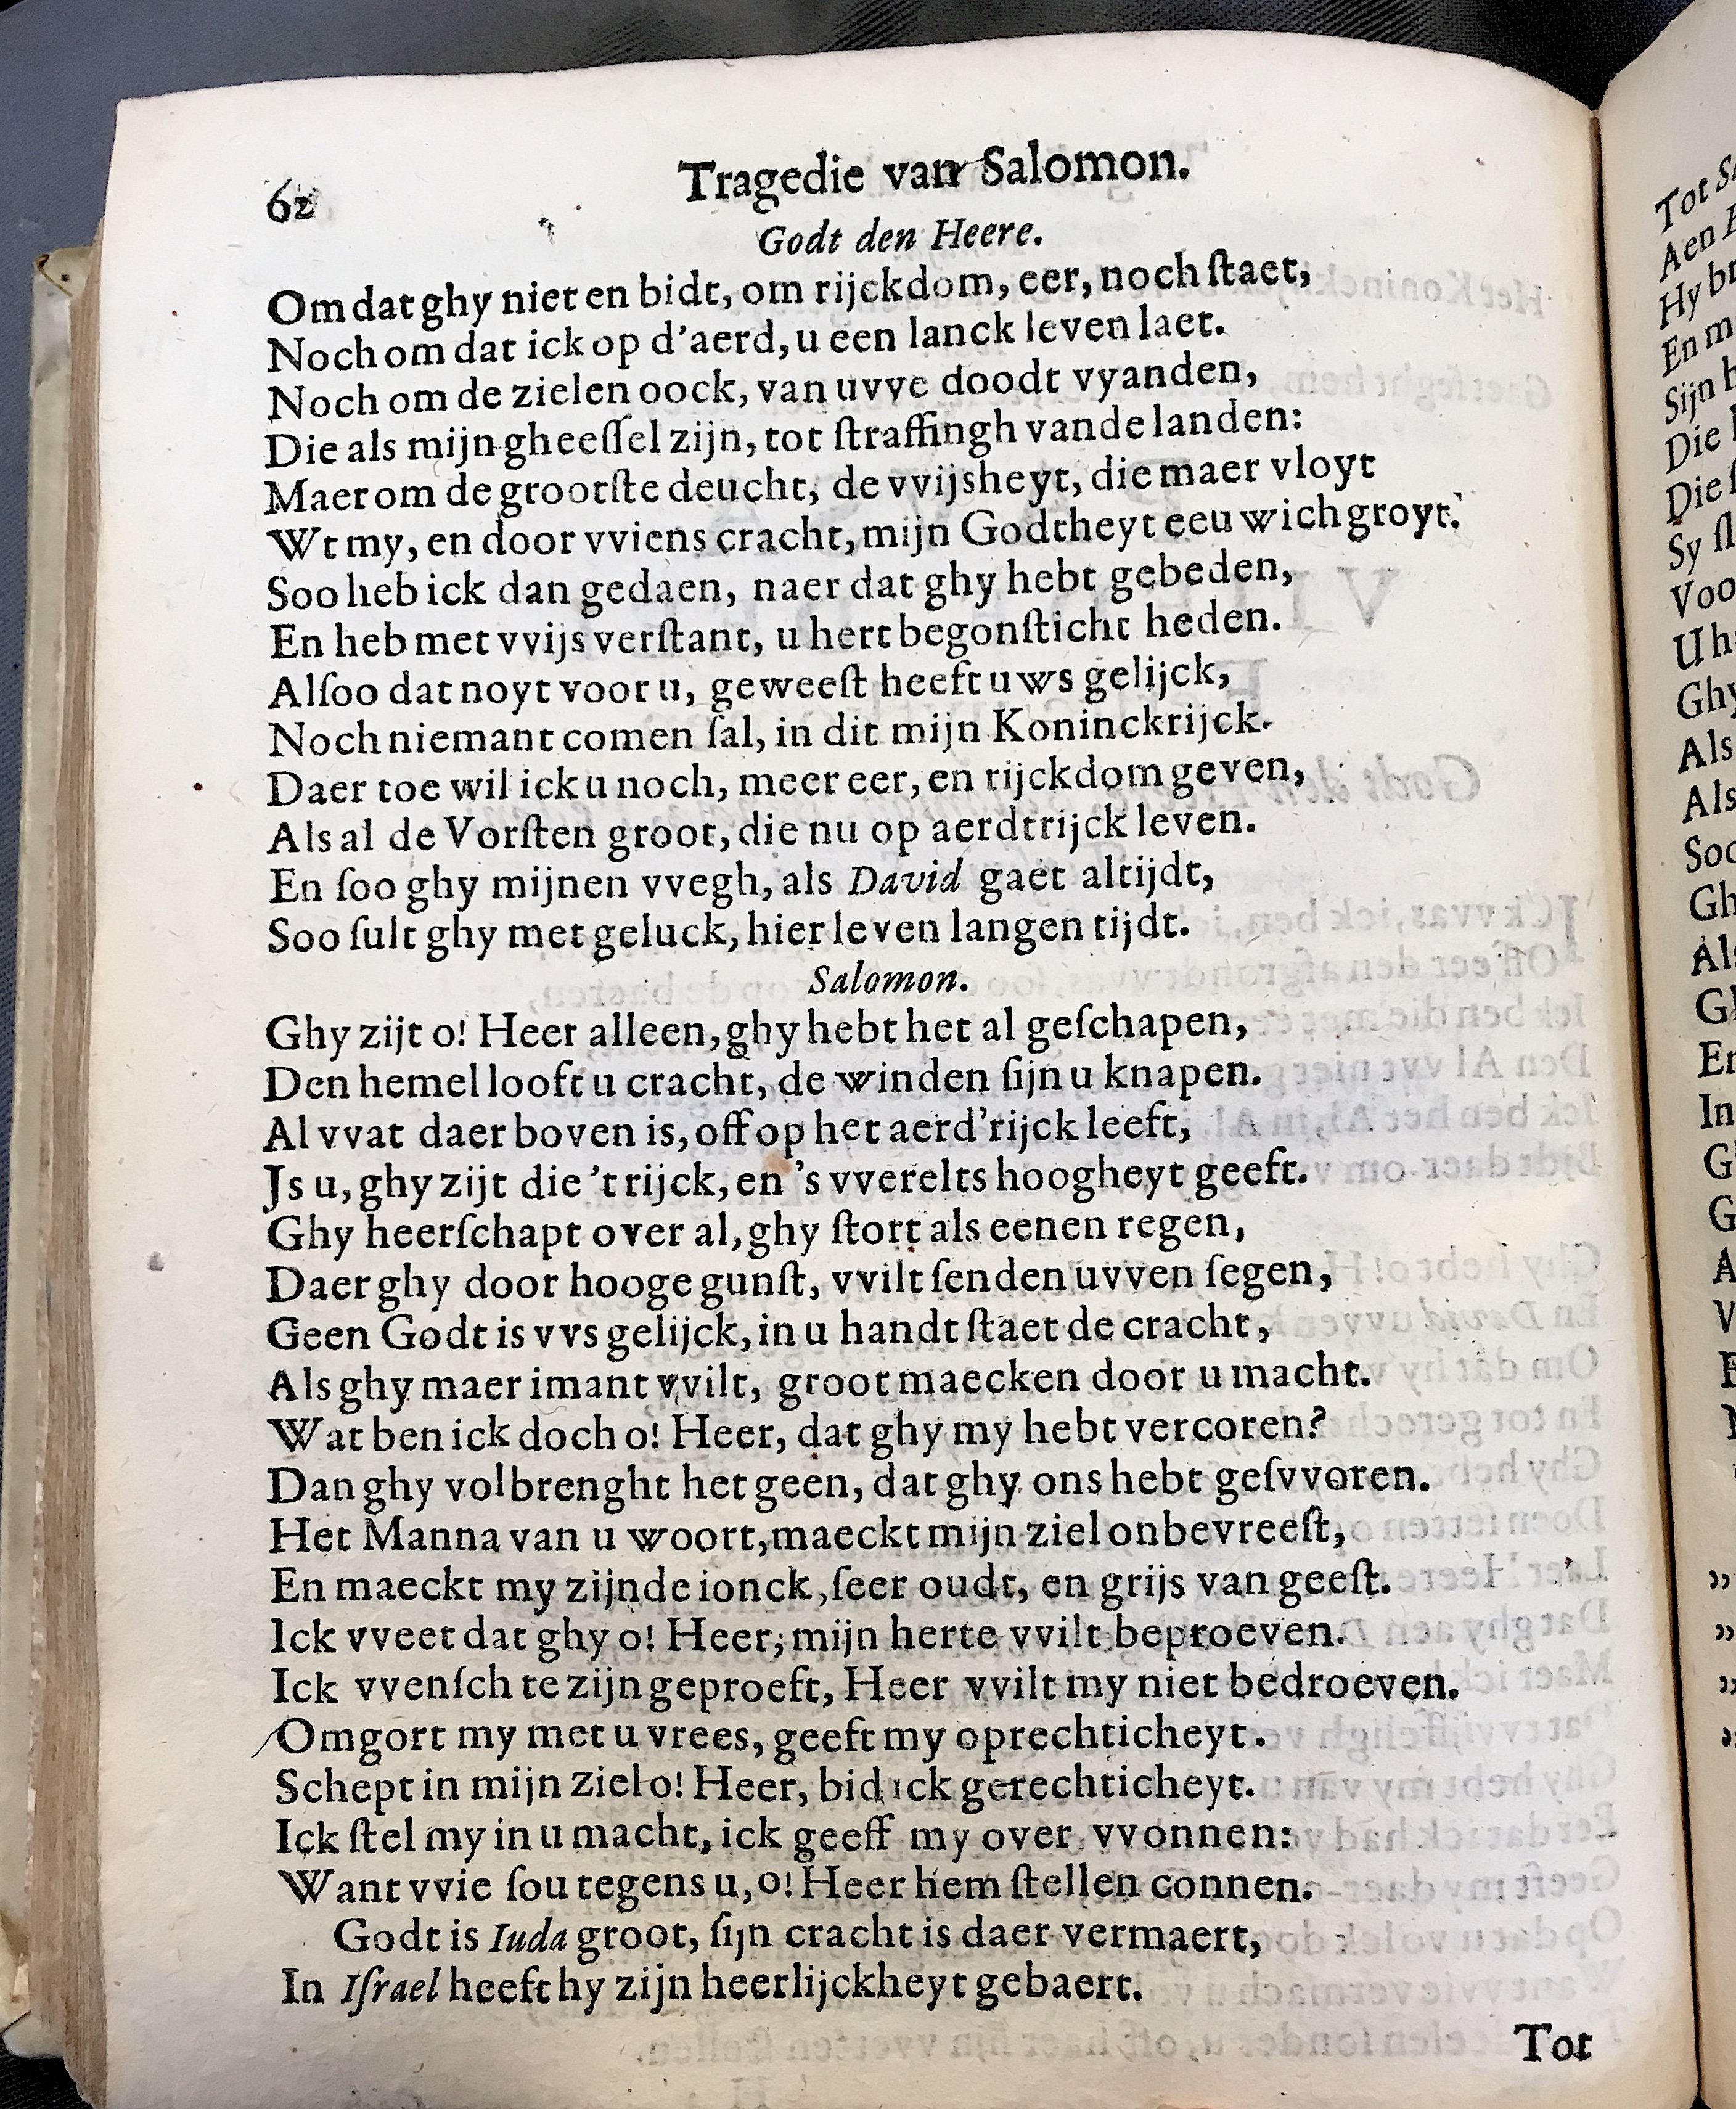 62
Tragedie van Salomon.
Godt den Heere.
Om dat ghy niet en bidt, om rijckdom, eer, noch ſtaet,
Noch om dat ick op d'aerd, u een lanck leven laet.
Noch om de zielen oock, van uvve doodt vyanden,
Die als mijn gheeſſel zijn, tot ſtraffingh vande landen:
Maer om de grootſte deucht, de vvijsheyt, die maer vloyt
Wt my, en door vviens cracht, mijn Godtheyt eeuwich groyt.
Soo heb ick dan gedaen, naer dat ghy hebt gebeden,
En heb met vvijs verſtant, u hert begonſticht heden.
Alſoo dat noyt voor u, geweeſt heeft uws gelijck,
Noch niemant comen ſal, in dit mijn Koninckrijck.
Daer toe wil ick u noch, meer eer, en rijckdom geven,
Als al de Vorſten groot, die nu op aerdtrijck leven.
En ſoo ghy mijnen vvegh, als David gaet altijdt,
Soo ſult ghy met geluck, hier leven langen tijdt.
Salomon.
Ghy zijt o! Heer alleen, ghy hebt het al geſchapen,
Den hemel looft u cracht, de winden ſijn u knapen.
Al vvat daer boven is, off op het aerd'rijck leeft,
Js u, ghy zijt die 't rijck, en 's vverelts hoogheyt geeft.
Ghy heerſchapt over al, ghy ſtort als eenen regen,
Daer ghy door hooge gunſt, vvilt ſenden uvven ſegen,
Geen Godt is vvs gelijck, in u handt ſtaet de cracht,
Als ghy maer imant vvilt, groot maecken door u macht.
Wat ben ick doch o! Heer, dat ghy my hebt vercoren?
Dan ghy volbrenght het geen, dat ghy ons hebt geſvvoren.
Het Manna van u woort, maeckt mijn ziel onbevreeſt,
En maeckt my zijnde ionck, ſeer oudt, en grijs van geeſt.
Ick vveet dat ghy o! Heer, mijn herte vvilt beproeven.
Ick vvenſch te zijn geproeft, Heer vvilt my niet bedroeven.
Omgort my met u vrees, geeft my oprechticheyt.
Schept in mijn ziel o! Heer, bid ick gerechticheyt.
Ick ſtel my in u macht, ick geeff my over vvonnen:
Want vvie ſou tegens u, o! Heer hem ſtellen connen.
Godt is Iuda groot, ſijn cracht is daer vermaert,
In Iſrael heeft hy zijn heerlijckheyt gebaert.
Tot